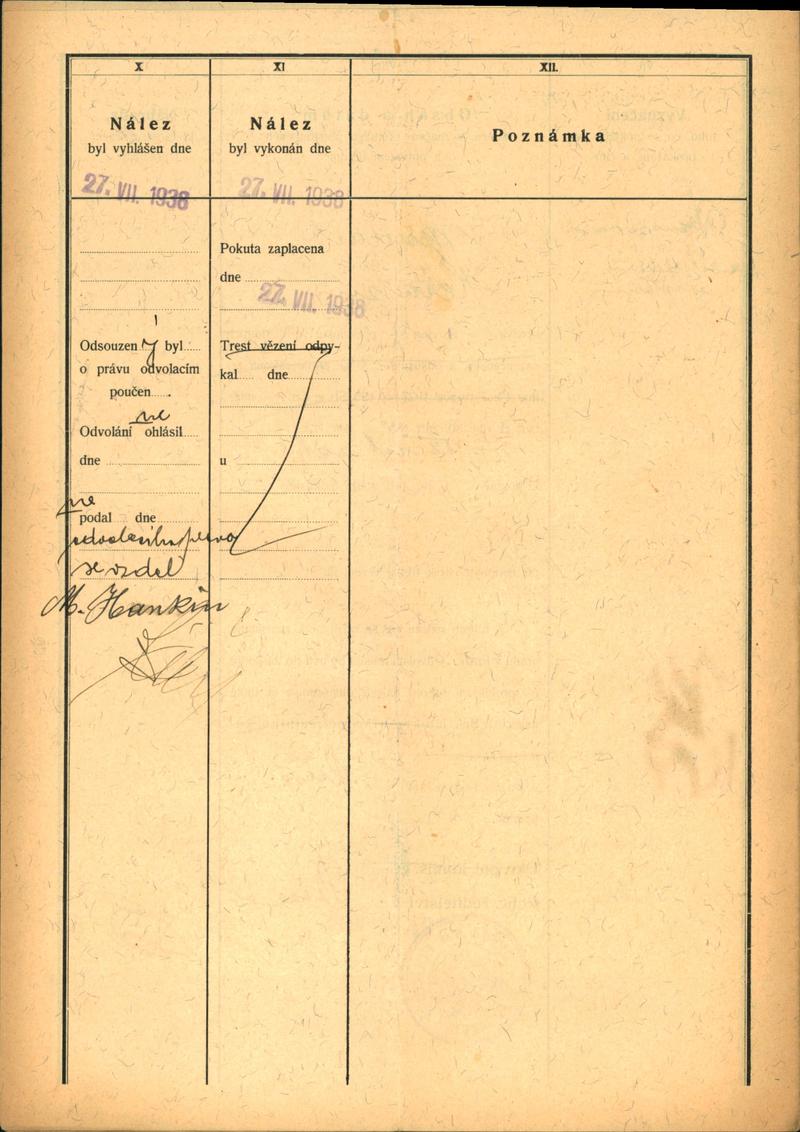 X
Nález
byl vyhlášen dne
27. VII. 1938
Odsouzený byl
o právu odvolacím
poučen
Odvolání ne ohlásil
dne
ne
podal dne
odvolacího práva
se vzdal
M. Hankin
XI
Nález
byl vykonán dne
27. VII. 1938
Pokuta zaplacena
dne
27. VII. 1938
Trest vězení odpy-
kal dne
u
XII.
Poznámka